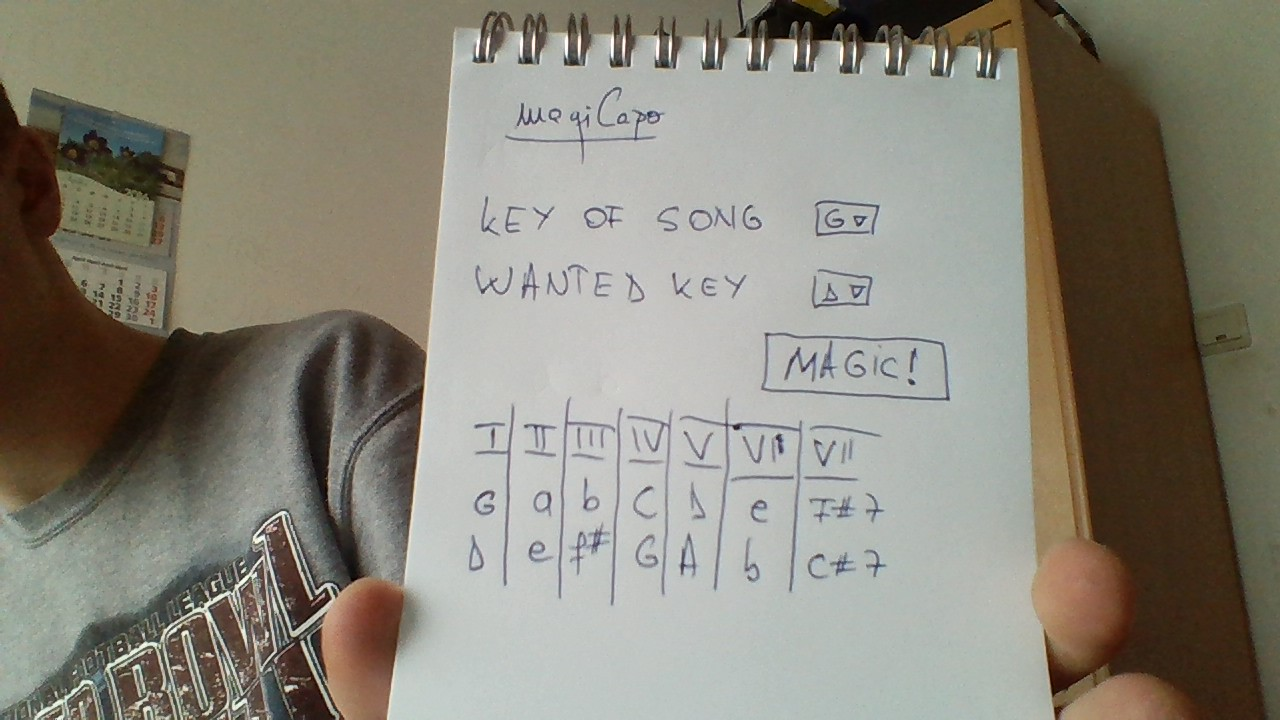 MagiCapo
KEY OF SONG G▽
WANTED KEY D▽
MAGIC!
I II III IV V VI VII
G a b C D e F#7
D e f# G A b C#7
FOOTBALL LEAGUE
BOWL